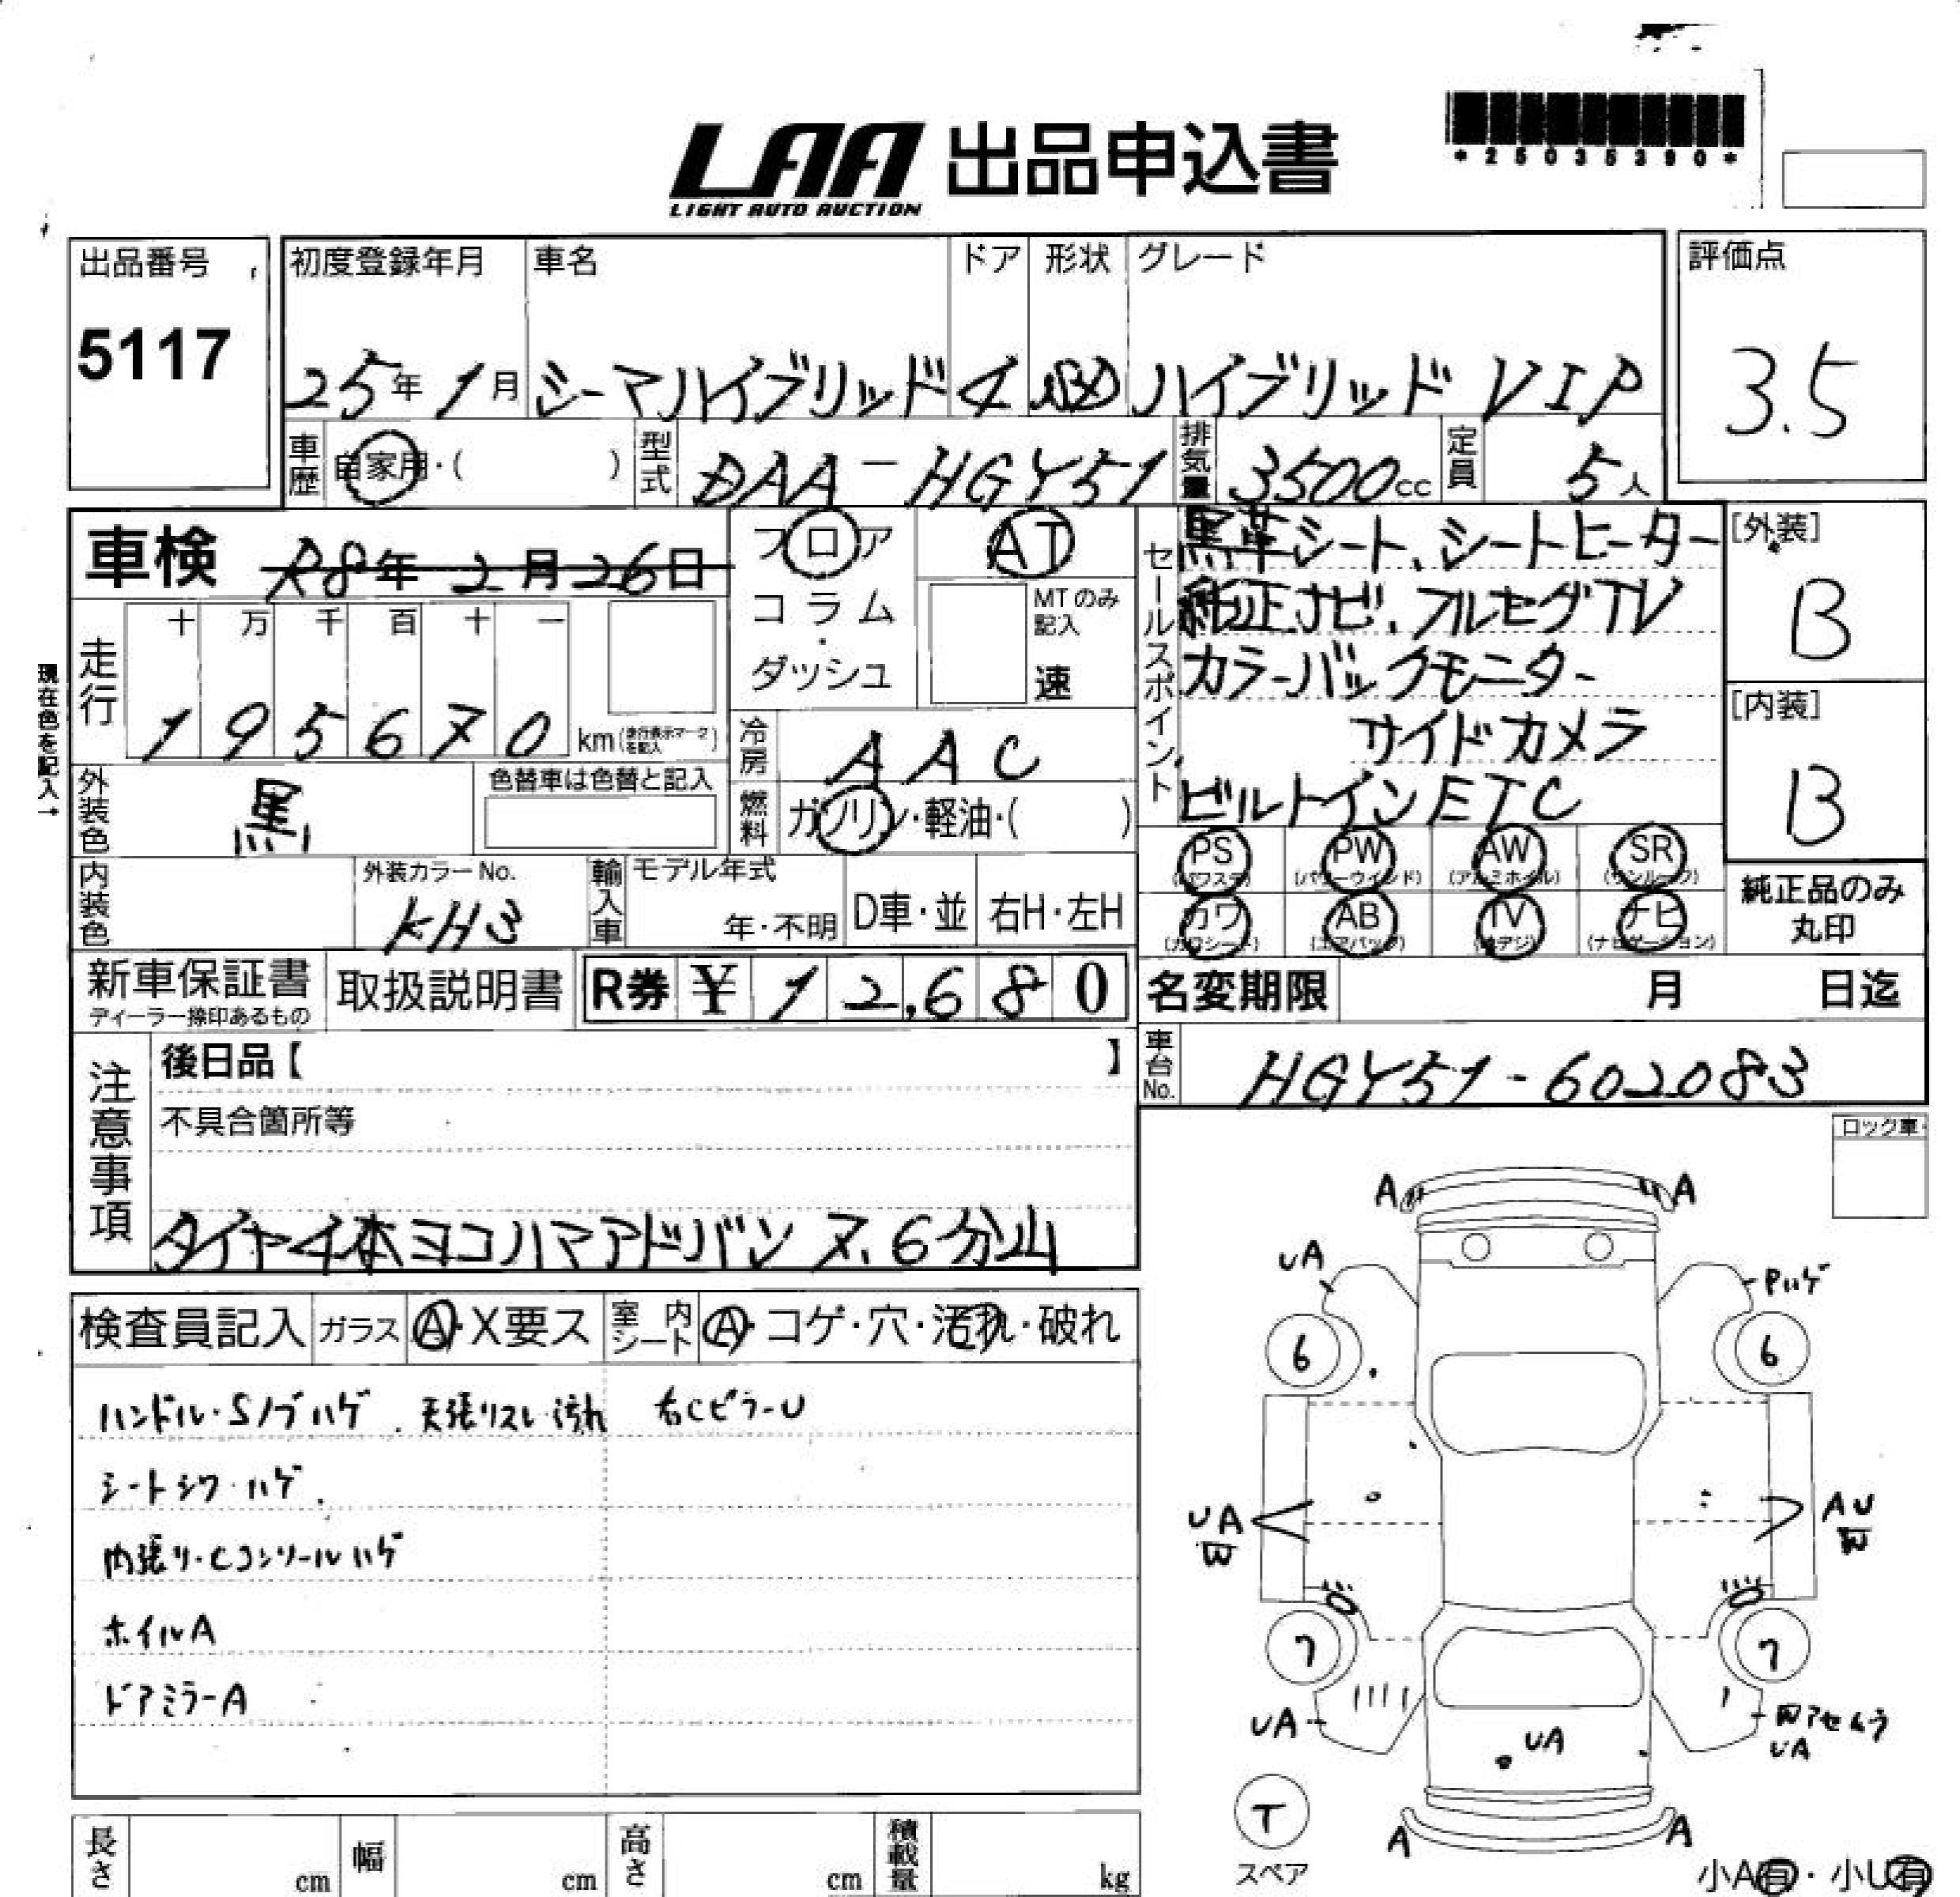 LAA 出品申込書
LIGHT AUTO AUCTION
*25035390*
出品番号
5117
初度登録年月 車名 ドア 形状 グレード
25年 1月 シーマハイブリッド 4 SD ハイブリッド VIP
評価点
3.5
車歴 自家用・( ) 型式 DAA-HGY51 排気量 3500cc 定員 5人
車検 R8年 2月 26日
フロア
コラム
・
ダッシュ
AT
MTのみ
記入
速
セールスポイント
黒革シート、シートヒーター
純正ナビ、フルセグTV
カラーバックモニター
サイドカメラ
ビルトインETC
[外装]
B
[内装]
B
現在色を記入→
走行 十 万 千 百 十 一
195670 km(走行表示マークを記入)
冷房 AAC
外装色 黒 色替車は色替と記入
燃料 ガソリン・軽油・( )
PS (パワステ) PW (パワーウィンド) AW (アルミホイル) SR (サンルーフ)
カワ (カワシート) AB (エアバック) TV (地デジ) ナビ (ナビゲーション)
純正品のみ
丸印
内装色 外装カラーNo. KH3
輸入車 モデル年式 年・不明 D車・並 右H・左H
新車保証書
ディーラー捺印あるもの
取扱説明書 R券 ¥ 12,680
名変期限 月 日迄
車台No. HGY51-602083
注意事項
後日品【 】
不具合箇所等
タイヤ4本ヨコハマアドバン 7、6分山
ロック車
検査員記入 ガラス A・X要ス 室内シート A・コゲ・穴・汚れ・破れ
ハンドル・Sノブハゲ 天張リスレ・汚れ 右Cピラ-U
シートシワ・ハゲ
内張リ・Cコンソールハゲ
ホイルA
ドアミラーA
A A
UA Pハゲ
6 6
UA W AU W
7 7
UA UA
UA
T
スペア
A A
小A有・小U有
長さ cm 幅 cm 高さ cm 積載量 kg